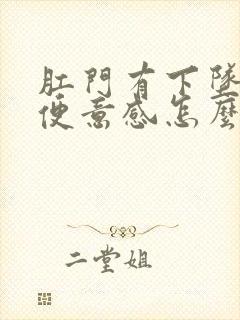 肛門有下墜
便意感怎麼
二堂姐